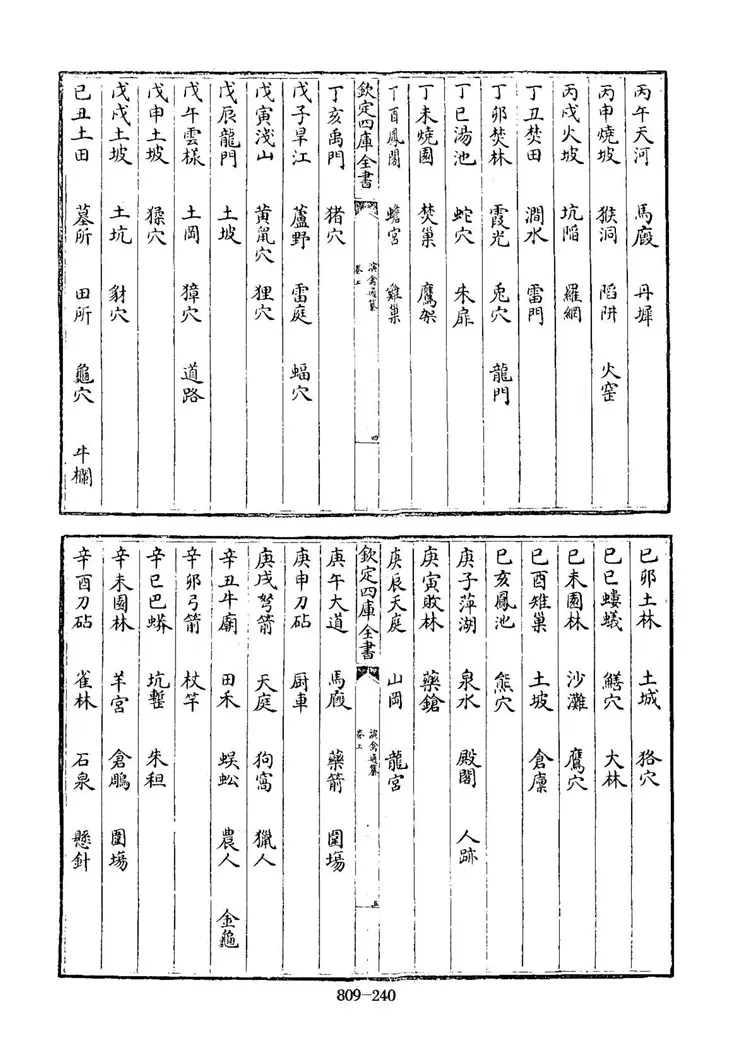 丙午天河 馬廄 丹墀
丙申燒坡 猴洞 陷阱 火窑
丙戌火坡 坑陷 羅網
丁丑焚田 澗水 雷門
丁卯焚林 霞光 兎穴 龍門
丁巳湯池 蛇穴 朱扉
丁未燒園 焚巢 鷹架
丁酉鳳閣 蟾宫 雞巢
欽定四庫全書 演禽通纂 卷上 四
丁亥禹門 猪穴
戊子旱江 蘆野 雷庭 蝠穴
戊寅淺山 黄鼠穴 狸穴
戊辰龍門 土坡
戊午雲樣 土岡 獐穴 道路
戊申土坡 猿穴
戊戌土坡 土坑 豺穴
巳丑土田 墓所 田所 龜穴 牛欄
巳卯土林 土城 狢穴
巳巳螻蟻 鱔穴 大林
巳未園林 沙灘 鷹穴
巳酉雉巢 土坡 倉廪
巳亥鳳池 熊穴
庚子萍湖 泉水 殿閣 人跡
庚寅敗林 藥鎗
庚辰天庭 山岡 龍宫
欽定四庫全書 演禽通纂 卷上 五
庚午大道 馬廄 藥箭 圍塲
庚申刀砧 厨車
庚戌弩箭 天庭 狗窩 獵人
辛丑牛廟 田禾 蜈蚣 農人 金龜
辛卯弓箭 杖竿
辛巳巴蟒 坑塹 朱租
辛未園林 羊宫 倉鵰 圍塲
辛酉刀砧 雀林 石泉 懸針
809-240